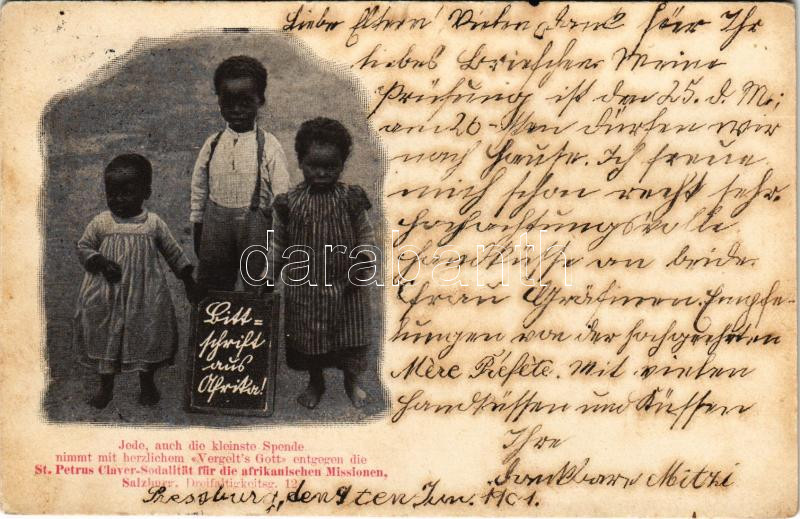 Liebe Eltern! Vielen Dank für Ihr
liebes Briefchen Meine
Prüfung ist den 25. d. M;
am 26-sten dürfen wir
nach Hause. Ich freue
mich schon recht sehr.
Hochachtungsvolle
Handküsse an beide
Frau Gräfinnen. Empfe-
lungen von der hochgeehrten
Mère Fiésète. Mit vielen
Handküssen und Küssen
Ihre
dankbare Mitzi
Bitt-
schrift
aus
Afrika!
Jede, auch die kleinste Spende
nimmt mit herzlichem «Vergelt's Gott» entgegen die
St. Petrus Claver-Sodalität für die afrikanischen Missionen,
Salzburg, Dreifaltigkeitsg. 12
Pressburg, den 9ten Jun. 1901.
darabanth.com